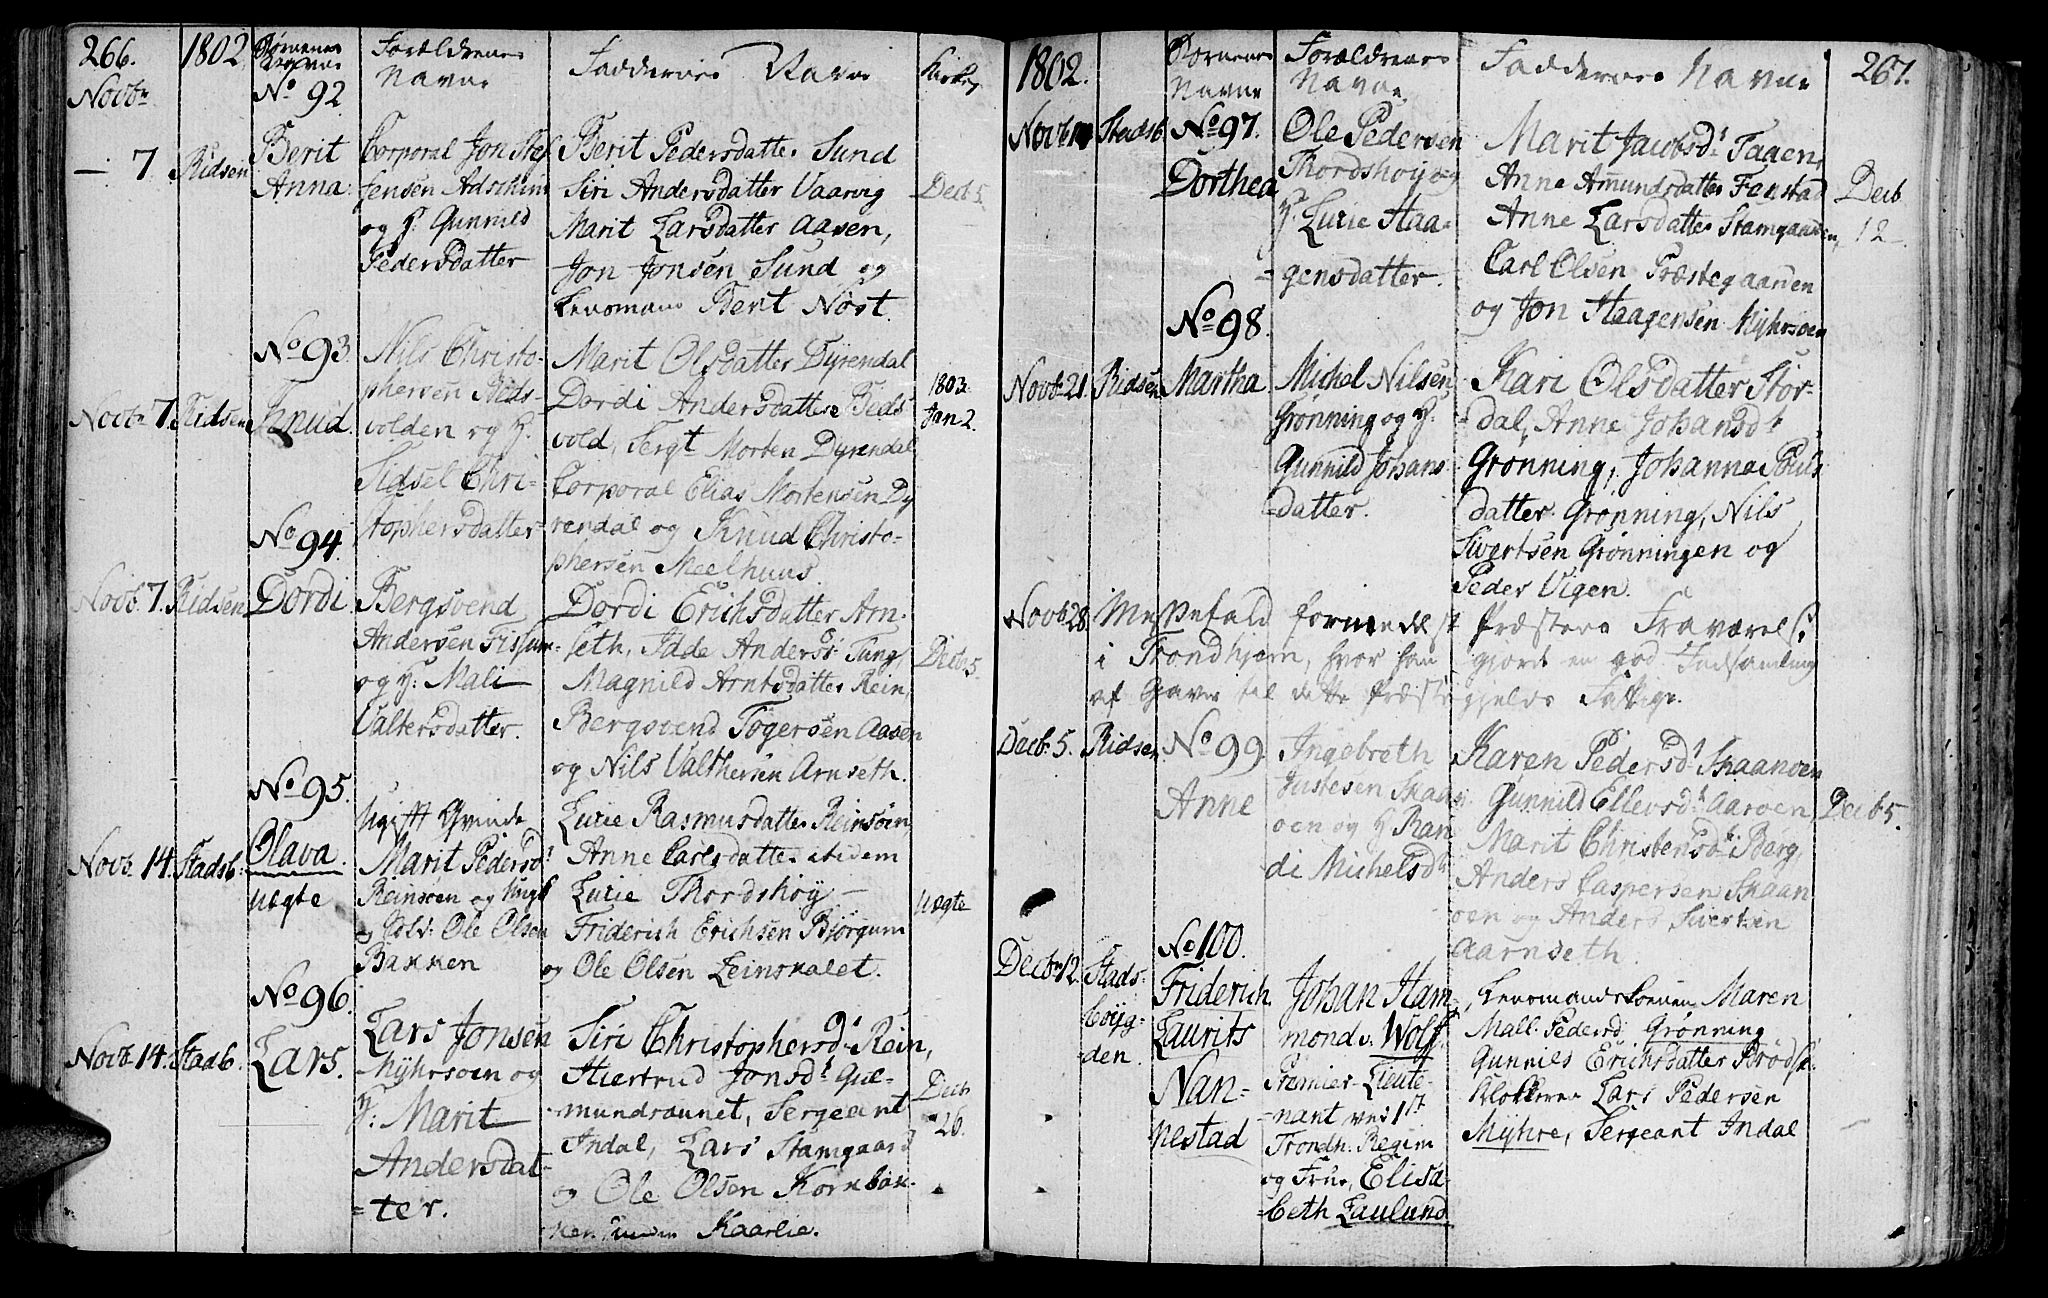 266. 1802. Børnenes Navne Forældrenes Navne Faddernes Navne Kirkeg
Novbr No 92
– 7 Ridsen Berit Anna
Corporal Jon Stef
fensen Adschim
og H. Gunnild
Pedersdatter
Berit Pedersdatter Sund
Siri Andersdatter Vaarvig
Marit Larsdatter Aasen,
Jon Jonsen Sund og
Levomand Berit Nøst.
Decb 5.
No 93.
Novbr 7. Ridsen Knud.
Nils Christo-
phersen Reds-
volden og H.
Sidsel Chri-
stophersdatter
Marit Olsdatter Dyrendal
Dordi Andersdatter Reds
vold, Sergt Morten Dyrendal
Corporal Elias Mortensen Dy
rendal og Knud Christo-
phersen Meelhuus.
1803.
Jan 2.
No 94.
Novb. 7. Ridsen Dordi
Bergsvend
Andersen Fissum
og H: Mali
Valtersdatter.
Dordi Erichsdatter Arn-
seth, Idde Andersd. Tung,
Magnild Arntsdatter Rein,
Bergsvend Togersen Aasen
og Nils Valthersen Arnseth.
Decb 5.
No 95.
Novb. 14. Stadsb: Olava.
uægte
Ugift Qvinde
Marit Pedersdt
Reinsoen og Ungk
Sold: Ole Olsen
Bakken
Lucie Rasmusdatter Reinsoen,
Anne Carlsdatter ibidem
Lucie Thordshøy –
Friderich Erichsen Bjørgum
og Ole Olsen Leinskalet.
Uægte
No 96.
Novb. 14. Stadb. Lars.
Lars Jonsen
Myhrsoen og
H: Marit
Andersdat-
=ter.
Siri Christophersd. Rein,
Hiertrud Jonsdt Gul-
mundraunet, Sergeant
Indal, Lars Stamgaard
og Ole Olsen Kornbak-
ken under Kaarlie.
Decb
26.
1802. Børnenes Navne Forældrenes Navne Faddernes Navne 267.
Novb Stadsb No 97.
Dorthea
Ole Pedersen
Thordshøy og
H. Lucie Haa=
=gensdatter.
Marit Jacobsdt Tagen,
Anne Amundsdatter Fenstad
Anne Larsdatter Stamgaarden,
Carl Olsen Præstegaarden
og Jon Haagensen Myhrsoen
Decb
12 –
No 98.
Novb. 21. Ridsen Martha
Michel Nilsen
Grønning og H.
Gunnild Johans
=datter.
Kari Olsdatter Stør-
dal, Anne Johansdt
Grønning, Johanna Pouls
datter Grønning, Nils
Sivertsen Grønningen og
Peder Vigen.
Novb 28. Messefald formedelst Præstens Fraværelse
i Trondhjem, hvor han gjorde en god Indsamling
af Gaver til dette Præstegjelds Fattige.
Decb. 5. Ridsen No 99.
Anne
Ingebreth
Justesen Skaan
oen og H Ran
di Michelsdt
Karen Pedersdt Skaanoen
Gunnild Ellevsdt Aaroen,
Marit Christensdt Berg,
Anders Caspersen Skaan
oen og Anders Sivertsen
Aarnseth.
Decb. 5.
No 100.
Decbr 12. Stads-
boyg-
den
Friderich
Laurits
Nan-
nestad
Johan Ham
mond v. Wolff.
Premier-Lieute-
=nant ved 1st
Trondh. Regim
og Frue, Elisa-
=beth Laulund.
Levomandskonen Maren
Mall. Pedersd: Grønning
Gunnild Erichsdatter
Klokkeren Lars Pedersen
Myhre, Sergeant Indal